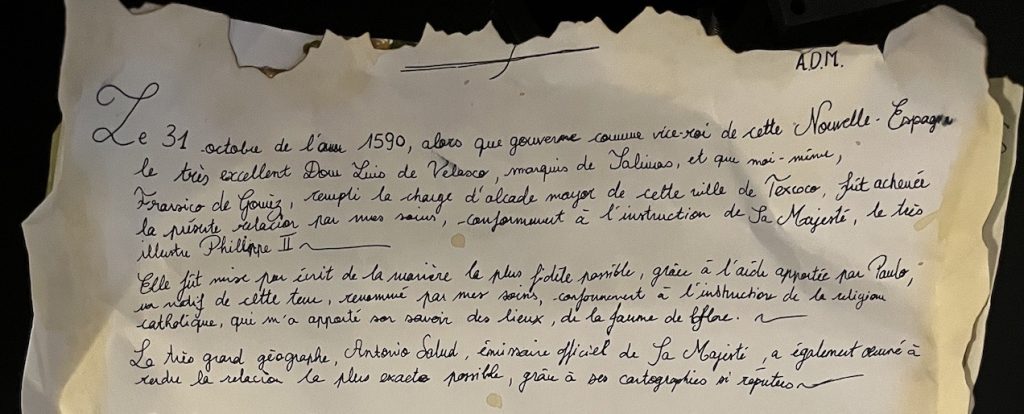 A.D.M.
Le 31 octobre de l'an 1590, alors que gouverne comme vice-roi de cette Nouvelle-Espagne
le très excellent Don Luis de Velasco, marquis de Salinas, et que moi-même,
Fransico de Gomez, rempli la charge d'alcade mayor de cette ville de Texcoco, fût achevée
la présente relacion par mes soins, conformément à l'instruction de Sa Majesté, le très
illustre Philippe II
Elle fût mise par écrit de la manière la plus fidèle possible, grâce à l'aide apportée par Paulo,
un natif de cette terre, renommé par mes soins, conformément à l'instruction de la religion
catholique, qui m'a apporté son savoir des lieux, de la faune de flore.
Le très grand géographe, Antonio Salud, émissaire officiel de Sa Majesté, a également œuvré à
rendre la relacion la plus exacte possible, grâce à ses cartographies si réputées